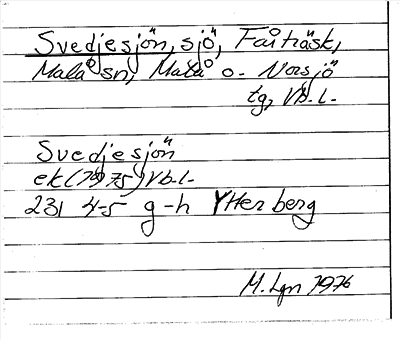 Svedjesjön, sjö, Fårträsk,
Malå sn, Malå o. Norsjö
tg, Vb.l.
Svedjesjön
ek (1975) Vb.l.
231 4-5 g-h Ytterberg
M. Lgn 1976